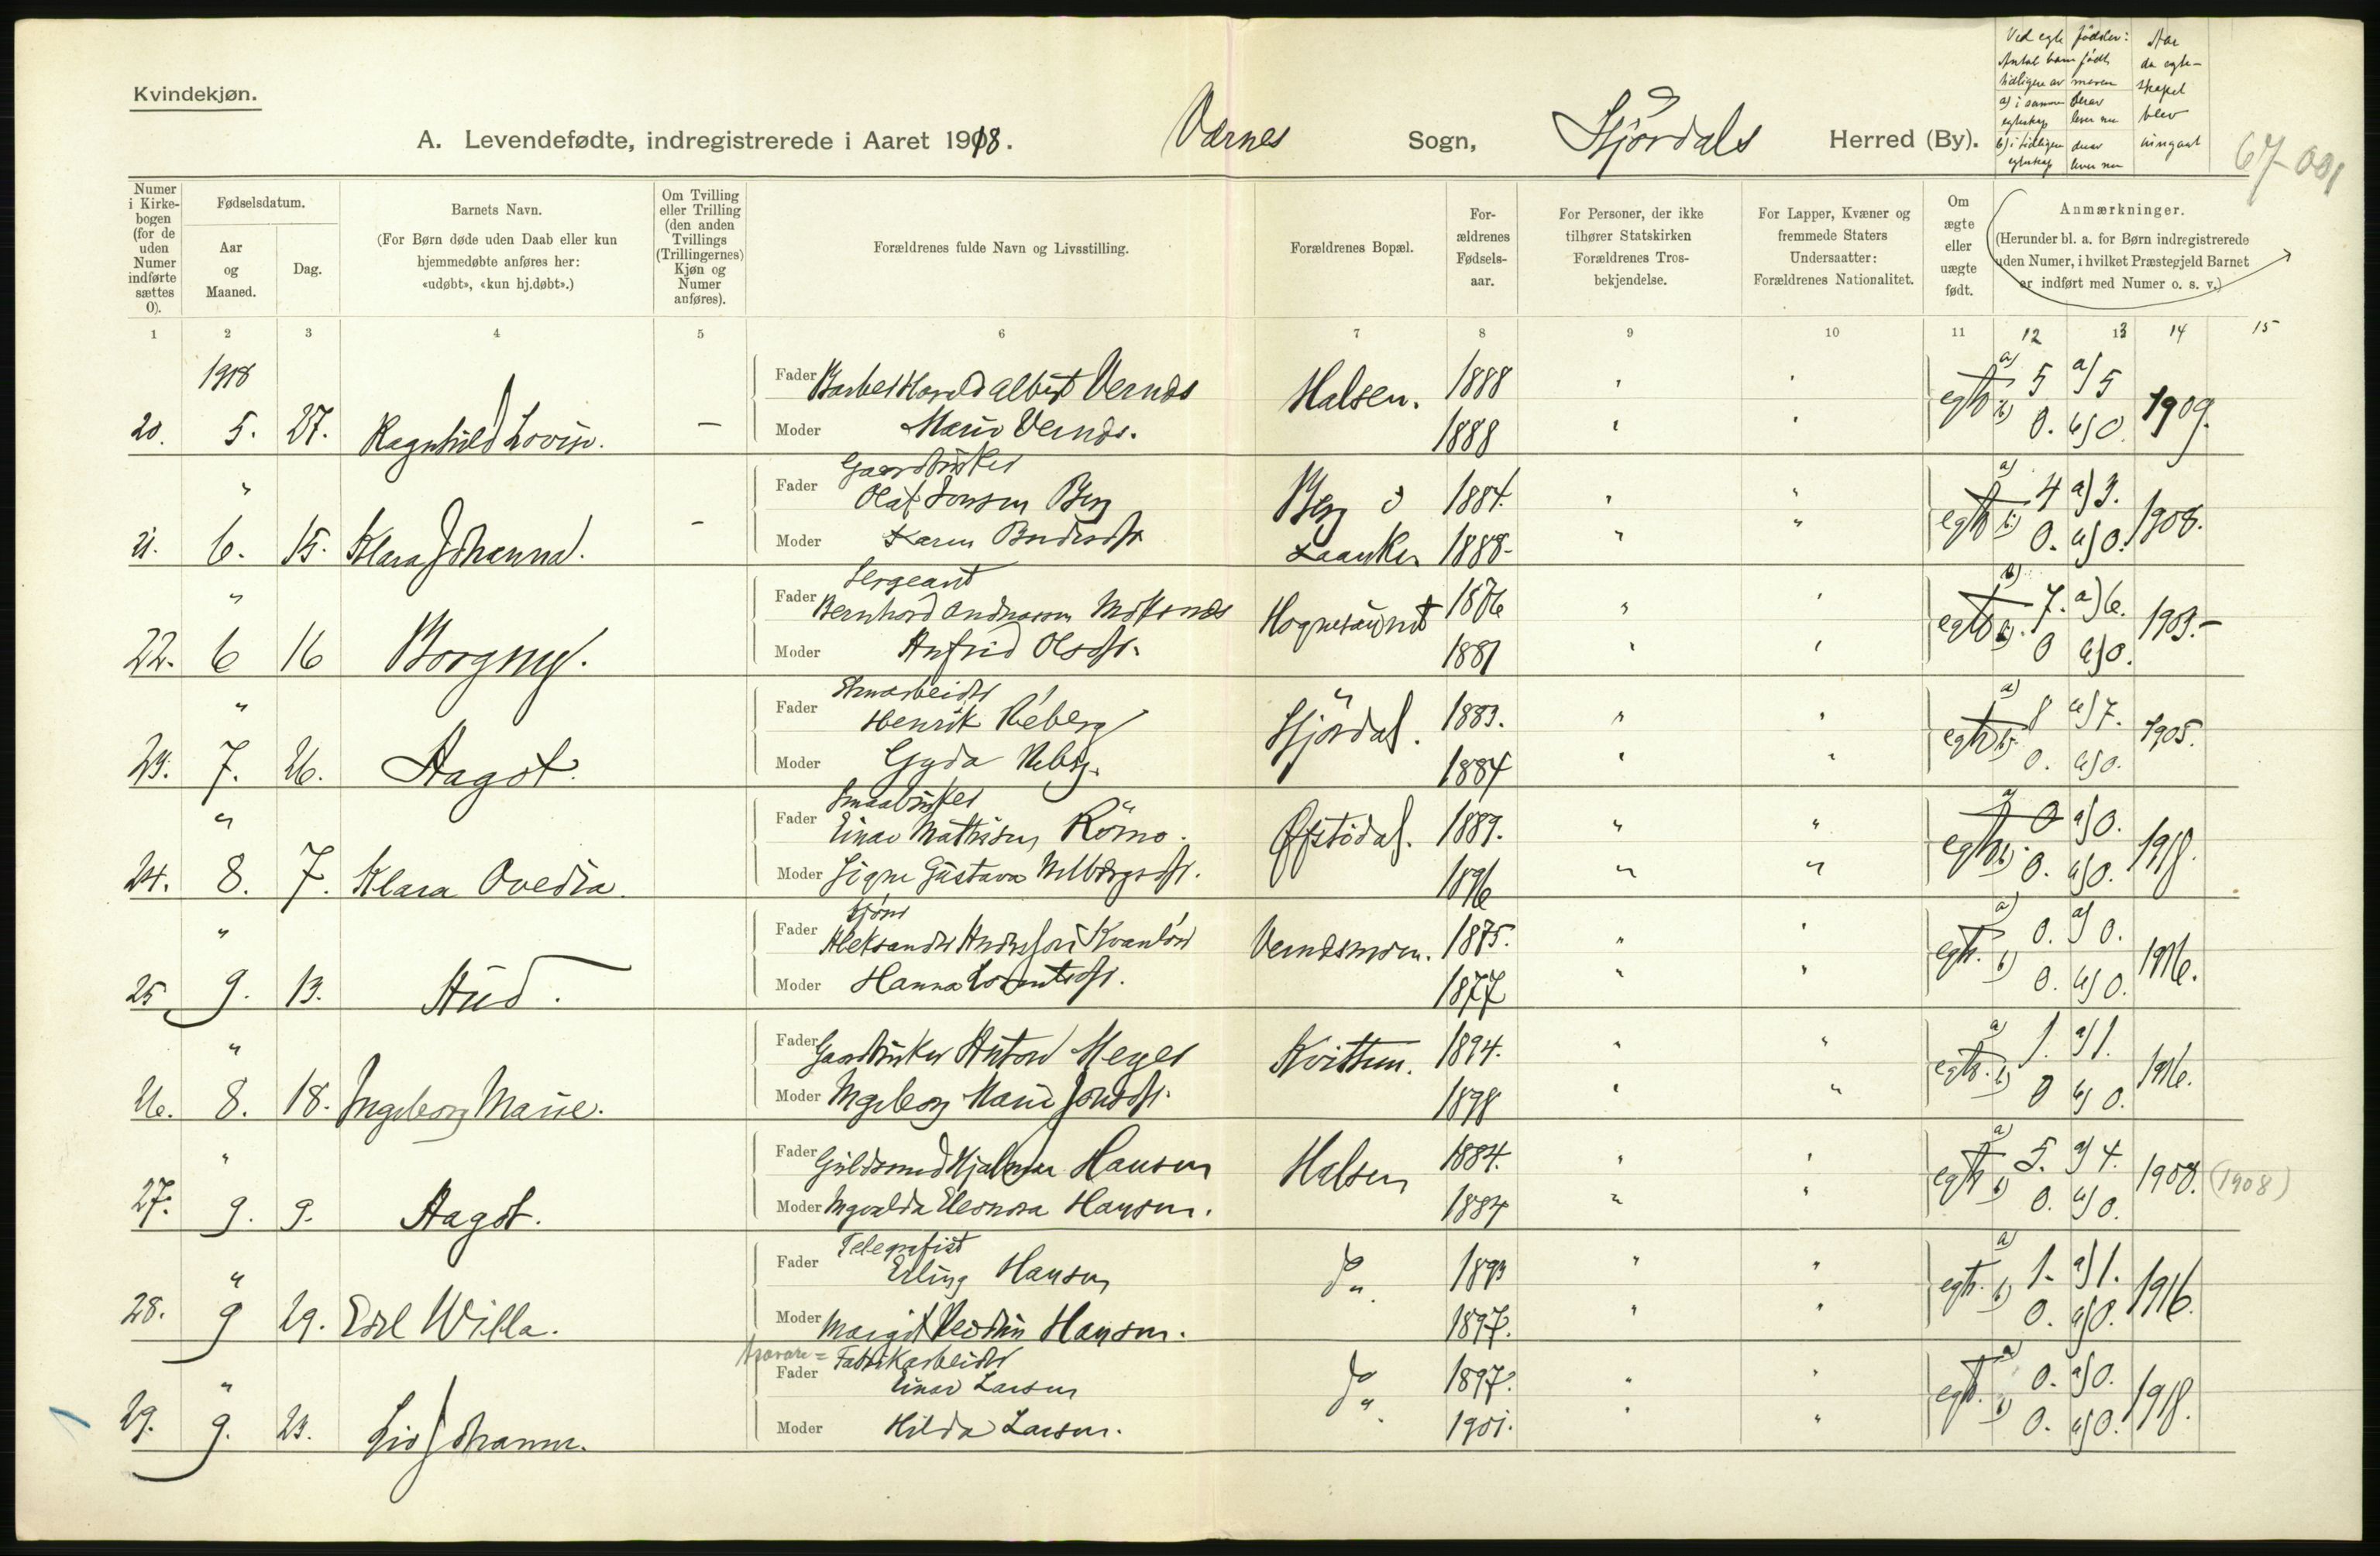 Kvindekjøn.
A. Levendefødte, indregistrerede i Aaret 1918. Værnes Sogn, Stjördals Herred (By).
Ved egte fødsler:
Antal barn født
tidligere av moren
a) i samme egteskap
derav lever nu
b) i tidligere egteskap
derav lever nu
Aar da egte-
skapet
blev
inngaat
67-001
Numer i Kirkebogen (for de uden Numer indførte sættes 0).
Fødselsdatum.
Aar og Maaned.
Dag.
Barnets Navn.
(For Børn døde uden Daab eller kun hjemmedøbte anføres her: «udøbt», «kun hj.døbt».)
Om Tvilling eller Trilling (den anden Tvillings (Trillingernes) Kjøn og Numer anføres).
Forældrenes fulde Navn og Livsstilling.
Forældrenes Bopæl.
Forældrenes Fødselsaar.
For Personer, der ikke tilhører Statskirken Forældrenes Trosbekjendelse.
For Lapper, Kvæner og fremmede Staters Undersaatter: Forældrenes Nationalitet.
Om ægte eller uægte født.
Anmærkninger.
(Herunder bl. a. for Børn indregistrerede uden Numer, i hvilket Præstegjeld Barnet er indført med Numer o. s. v.)
1 2 3 4 5 6 7 8 9 10 11 12 13 14 15
1918
Fader Harald Albert Vernes Halsen. 1888 a) 5 a) 5
20. 5. 27. Ragnhild Lovise. – Moder Marie Vernes. 1888 egte b) 0. b) 0. 1909.
" Gaardbruker
Fader Olaf Jonsen Berg Berg 1884. a) 4 a) 3.
21. 6. 15. Klara Johanna. - Moder Karen 1888- egte b) 0. b) 0. 1908.
" Sergeant
Fader Bernhard 1876 7. a) 6.
22. 6 16 Borgny. Moder Anfrid Olsdtr. 1881 egte b) 0 b) 0. 1903.-
"
Fader Henrik Reberg Stjördal. 1883. a) 8 a) 7.
23. 7. 26. Aagot. Moder Gyda Reberg. 1884 egte b) 0. b) 0. 1905.
" Smaabruker
Fader Einar Mathisen Römo. 1889. a) 0 a) 0.
24. 8. 7. Klara Ovedia. Moder Signe Gustava 1896 egte b) 0. b) 0. 1918.
"
Fader Aleksander 1875. a) 0. a) 0.
25 9. 13. Aud. Moder Hanna Lorentsdtr. 1877 egte. b) 0. b) 0. 1916.
"
Fader Gaardbruker Anton Meyer Kvittum. 1894. a) 1. a) 1.
26. 8. 18. Ingeborg Marie. Moder Ingeborg Marie Jonsdtr. 1898 egte. b) 0 b) 0. 1916.
"
Fader Guldsmed Hjalmar Hansen Halsen 1884. a) 5. a) 4.
27. 9. 9. Aagot. Moder Ingvalda Eleonora Hansen. 1884 egte b) 0. b) 0. 1908. (1908)
" Telegrafist
Fader Erling Hansen do 1893 a) 1. a) 1.
28. 9 29. Edel Willa. Moder Margit Hansen. 1897. egte. b) 0. b) 0. 1916.
" Fabrikarbeider
Fader Einar Larsen do 1897. a) 0. a) 0.
29. 9. 23. Liv Johanne. Moder Hilda Larsen. 1901. egte. b) 0. b) 0. 1918.